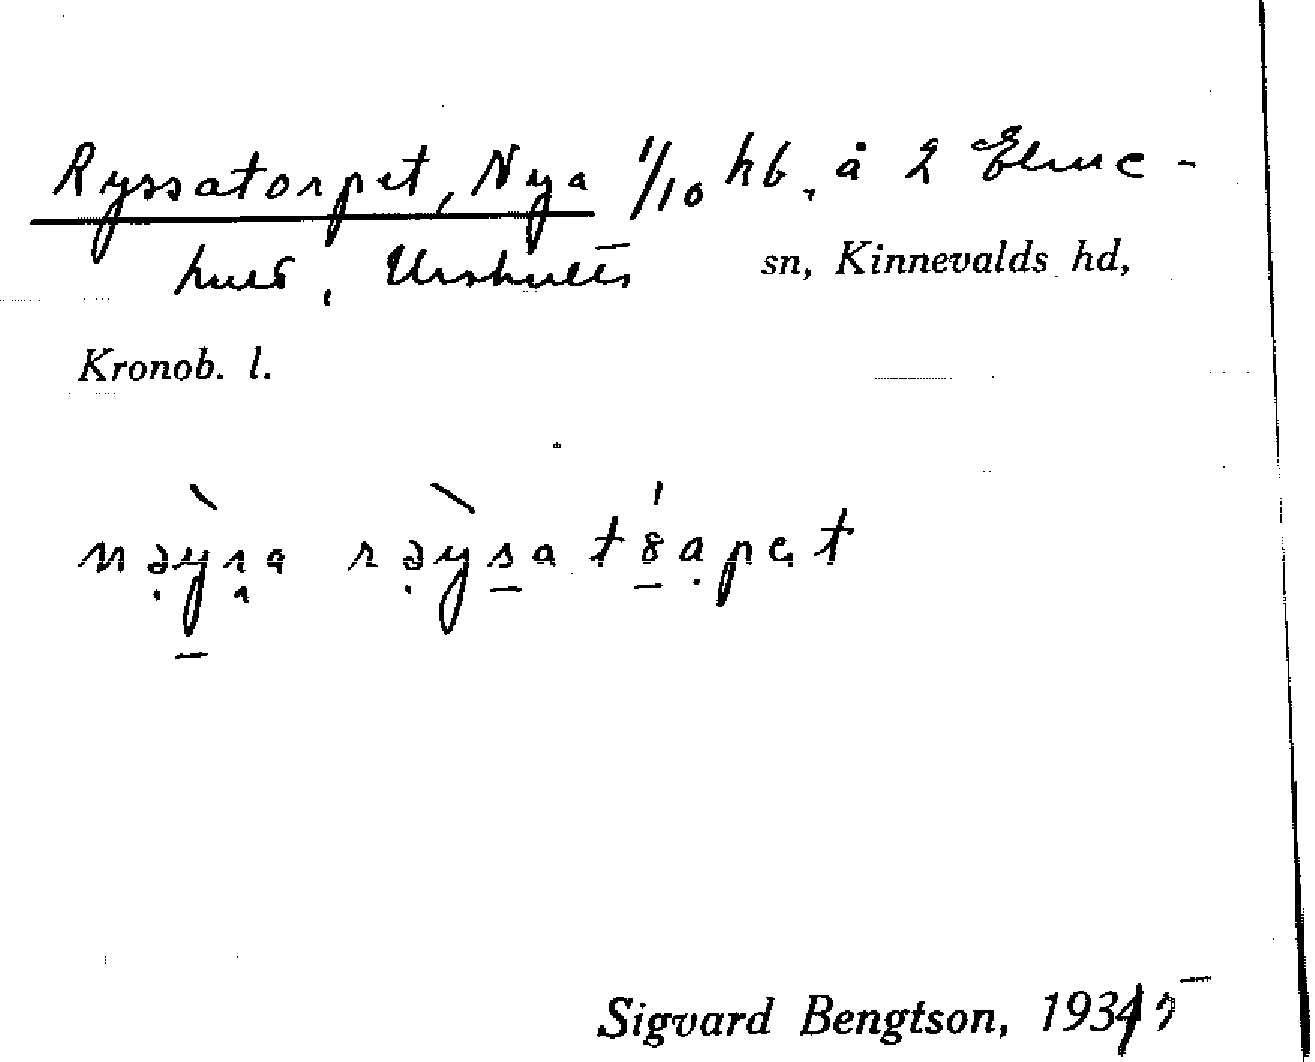 Ryssatorpet, Nya 1/10 hb. å 2 Elme-
hult, Urshults sn, Kinnevalds hd,
Kronob. l.
Sigvard Bengtson, 1935